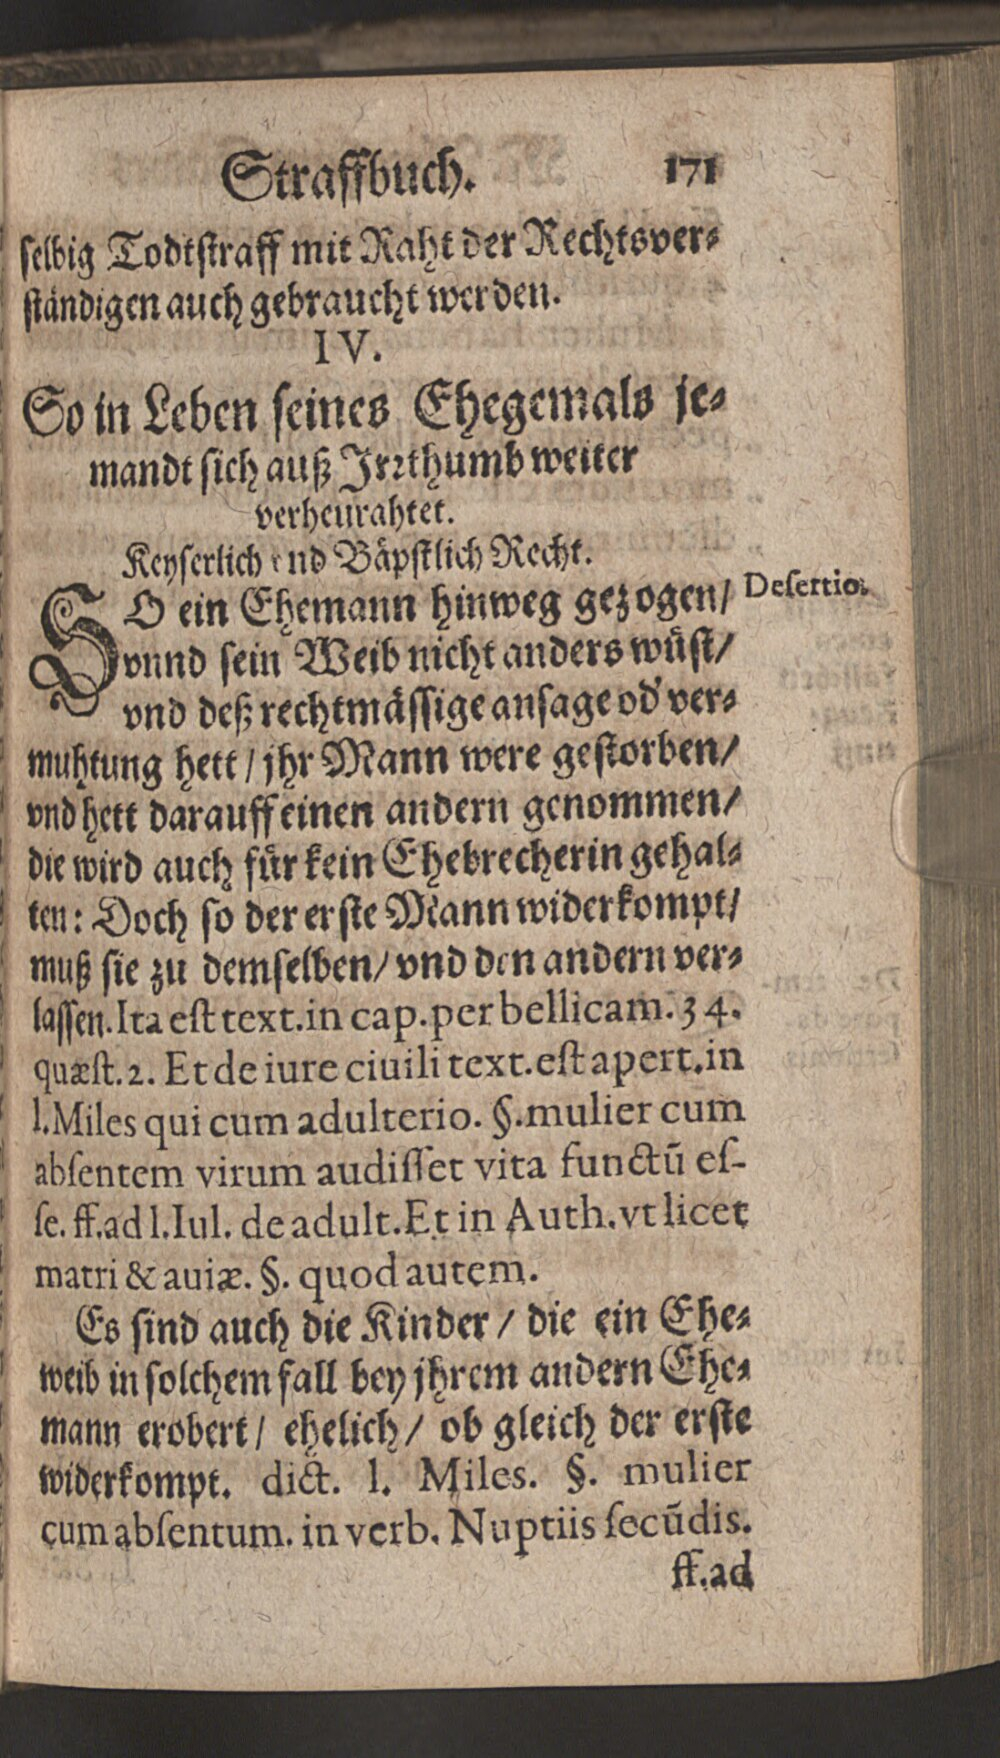 Straffbuch. 171
selbig Todtstraff mit Raht der Rechtsver⸗
ständigen auch gebraucht werden.
IV.
So in Leben seines Ehegemals je⸗
mandt sich auß Irrthumb weiter
verheurahtet.
Keyserlich vnd Bäpstlich Recht.
SO ein Ehemann hinweg gezogen/ Desertio.
vnnd sein Weib nicht anders wüst/
vnd deß rechtmässige ansage od' ver⸗
muhtung hett / jhr Mann were gestorben/
vnd hett darauff einen andern genommen/
die wird auch für kein Ehebrecherin gehal⸗
ten: Doch so der erste Mann widerkompt/
muß sie zu demselben/ vnd den andern ver⸗
lassen. Ita est text. in cap. per bellicam. 34.
quæst. 2. Et de iure ciuili text. est apert. in
l. Miles qui cum adulterio. §. mulier cum
absentem virum audisset vita functū es-
se. ff. ad l. Iul. de adult. Et in Auth. vt licet
matri & aviæ. §. quod autem.
Es sind auch die Kinder / die ein Ehe⸗
weib in solchem fall bey jhrem andern Ehe⸗
mann erobert / ehelich / ob gleich der erste
widerkompt. dict. l. Miles. §. mulier
cum absentum. in verb. Nuptiis secūdis.
ff. ad